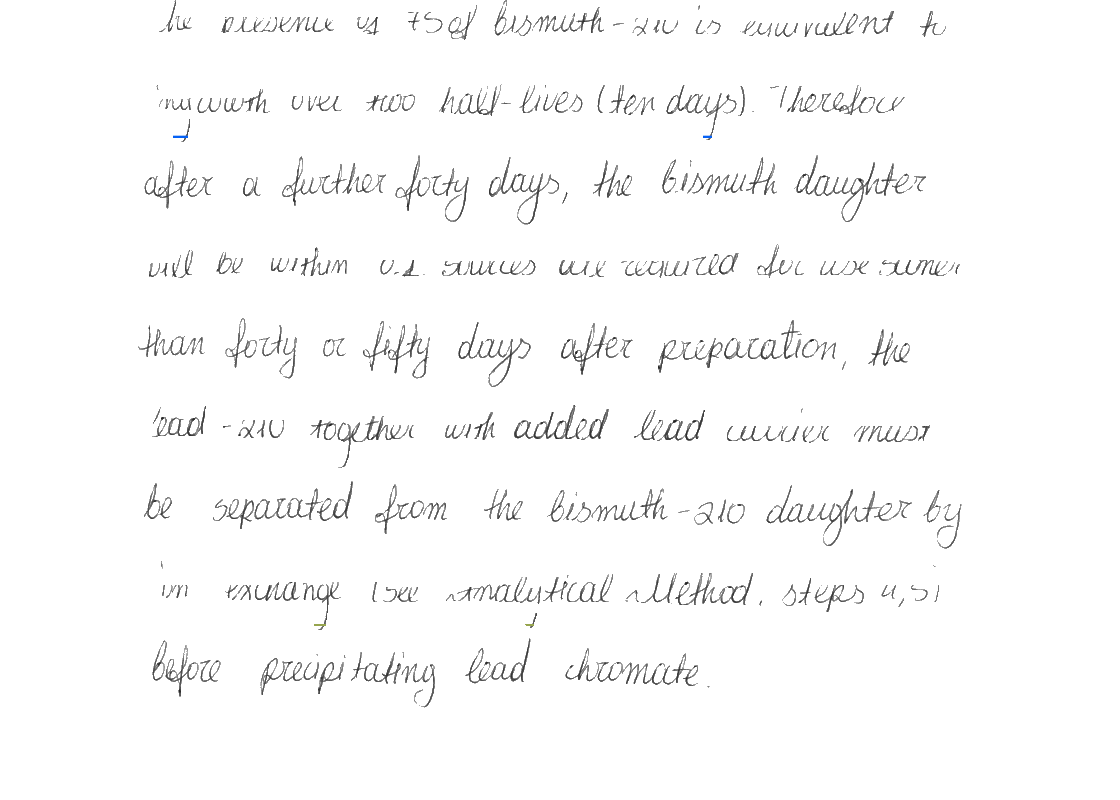 he presence of 75 of bismuth-210 is equivalent to
ingrowth over two half-lives (ten days). Therefore
after a further forty days, the bismuth daughter
will be within 0.1. sources are required for use sumer
than forty or fifty days after preparation, the
lead-210 together with added lead carrier must
be separated from the bismuth-210 daughter by
ion exchange (see Analytical Method, steps 4,5)
before precipitating lead chromate.